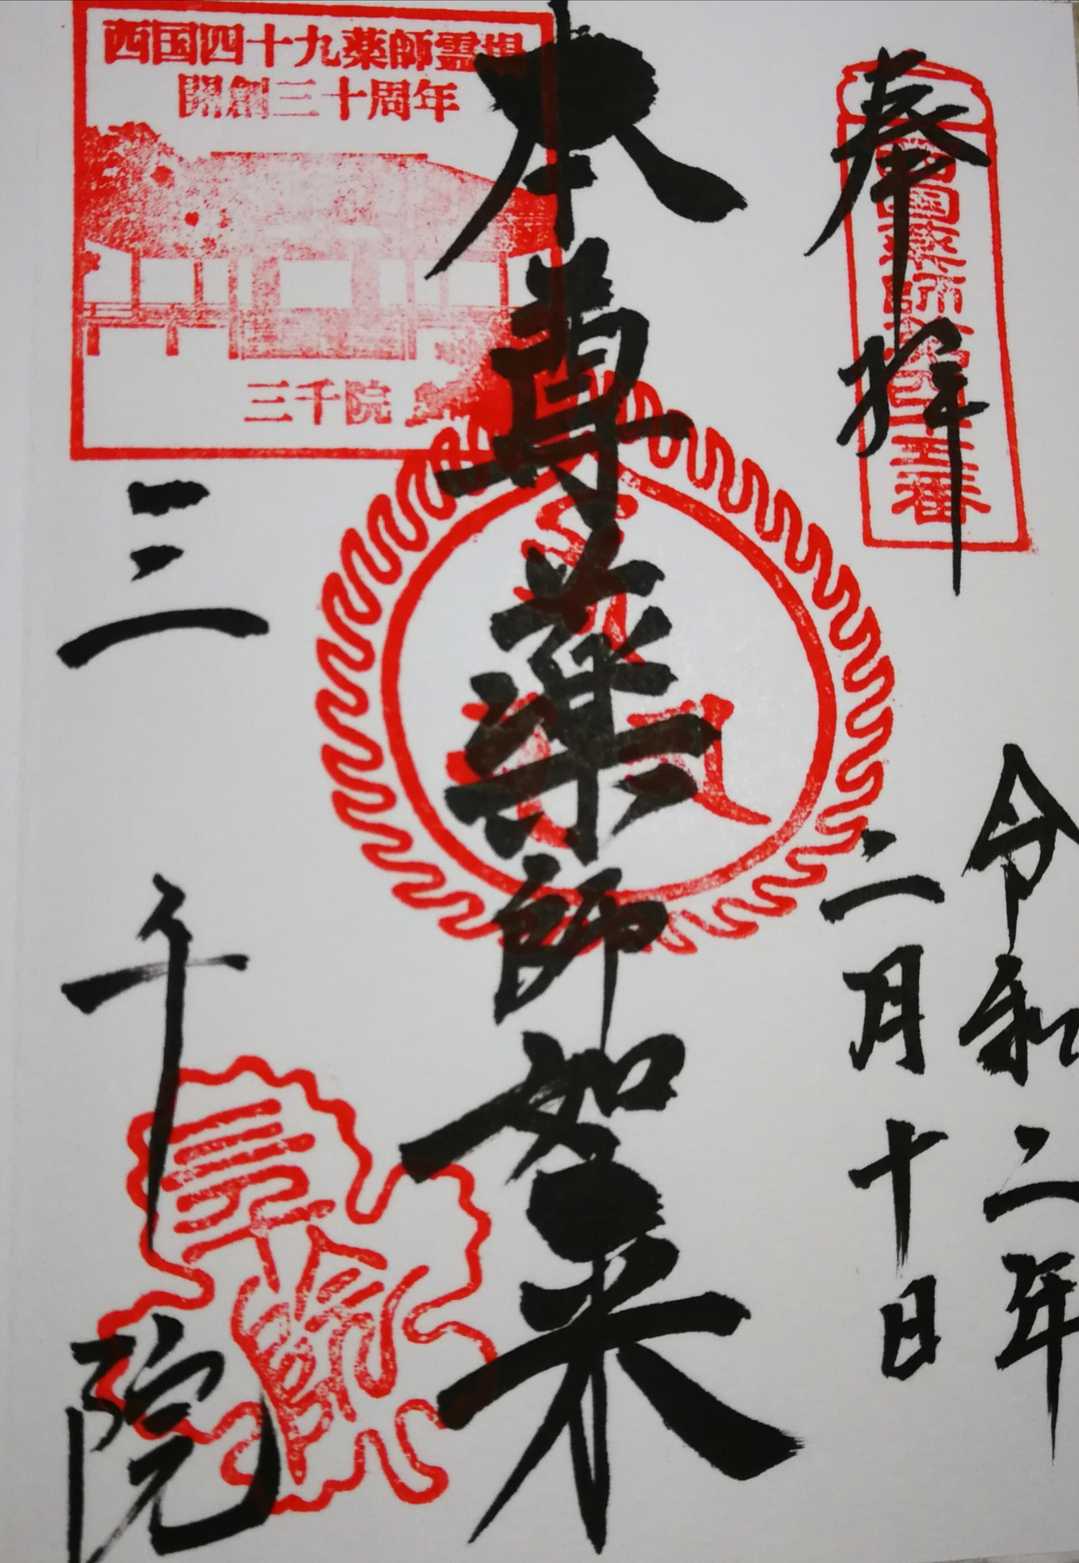 奉拝
西国薬師第四十五番
令和二年
二月十日
本尊薬師如来
西国四十九薬師霊場
開創三十周年
三千院
三千院